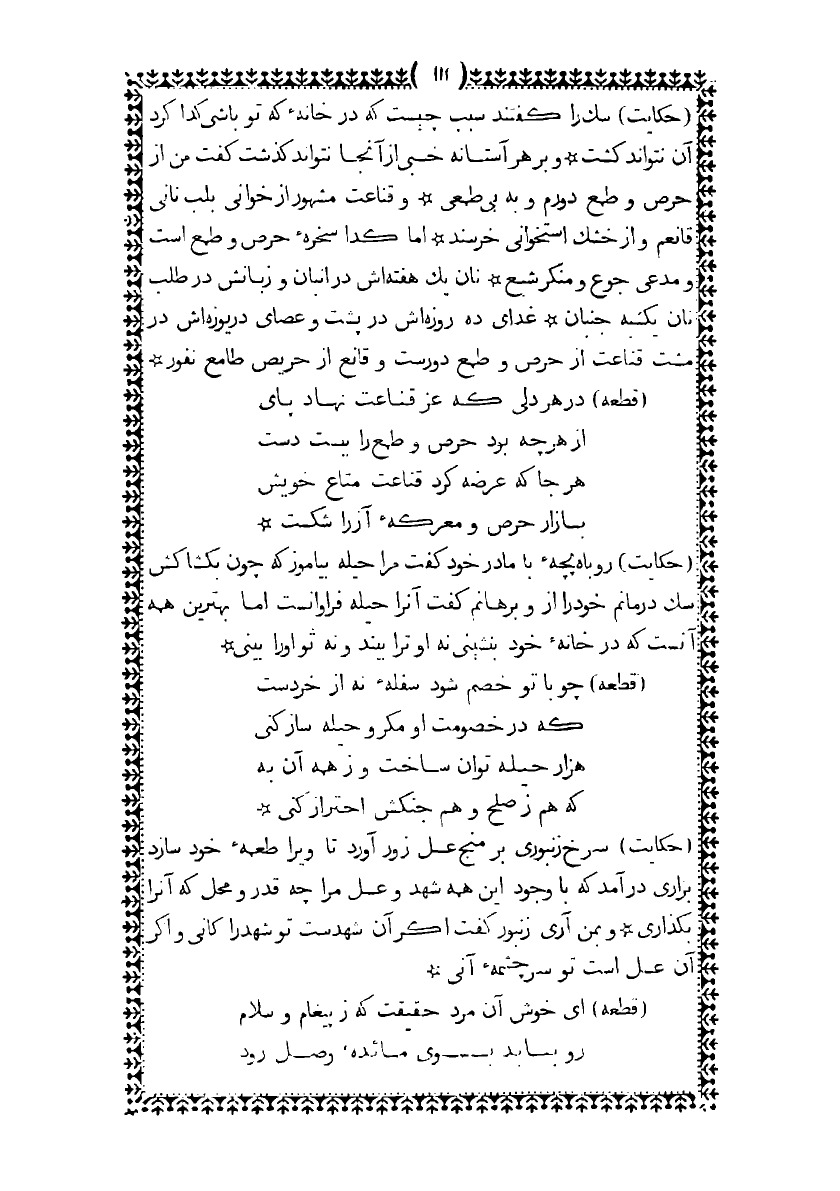 ( ۱۱۱ )
(حكایت) سك را كفتند سبب چیست كه در خانهٴ كه تو باشی كدا كرد
آن نتواند كشت ☆ و بر هر آستانه خسبی از آنجا نتواند كذشت كفت من از
حرص و طمع دورم و به بی‌طمعی ☆ و قناعت مشهور از خوانی بلب نانی
قانعم و از خشك استخوانی خرسند ☆ اما كدا سخرهٴ حرص و طمع است
و مدعی جوع و منكر شبع ☆ نان یك هفته‌اش در انبان و زبانش در طلب
نان یكشبه جنبان ☆ غدای ده روزه‌اش در پشت و عصای دریوزه‌اش در
مشت قناعت از حرص و طمع دورست و قانع از حریص طامع نفور ☆
(قطعه) در هر دلی كه عز قناعت نهاد پای
از هرچه بود حرص و طمع را ببست دست
هر جا كه عرضه كرد قناعت متاع خویش
بازار حرص و معركهٴ آزرا شكست ☆
(حكایت) روباه بچهٴ با مادر خود كفت مرا حیله بیاموز كه چون بكشاكش
سك درمانم خودرا از و برهانم كفت آنرا حیله فراوانست اما بهترین همه
آنست كه در خانهٴ خود بنشینی نه او ترا بیند و نه تو اورا بینی ☆
(قطعه) چو با تو خصم شود سفلهٴ نه از خردست
كه در خصومت او مكر و حیله ساز كنی
هزار حیله توان ساخت و ز همه آن به
كه هم ز صلح و هم جنكش احتراز كنی ☆
(حكایت) سرخ زنبوری بر منج عسل زور آورد تا ویرا طعمهٴ خود سازد
بزاری در آمد كه با وجود این همه شهد و عسل مرا چه قدر و محل كه آنرا
بكذاری ☆ و بمن آری زنبور كفت اكر آن شهدست تو شهدرا كانی و اكر
آن عسل است تو سرچشمهٴ آنی ☆
(قطعه) ای خوش آن مرد حقیقت كه ز پیغام و سلام
رو بتابد بسوی مائدهٴ وصل رود